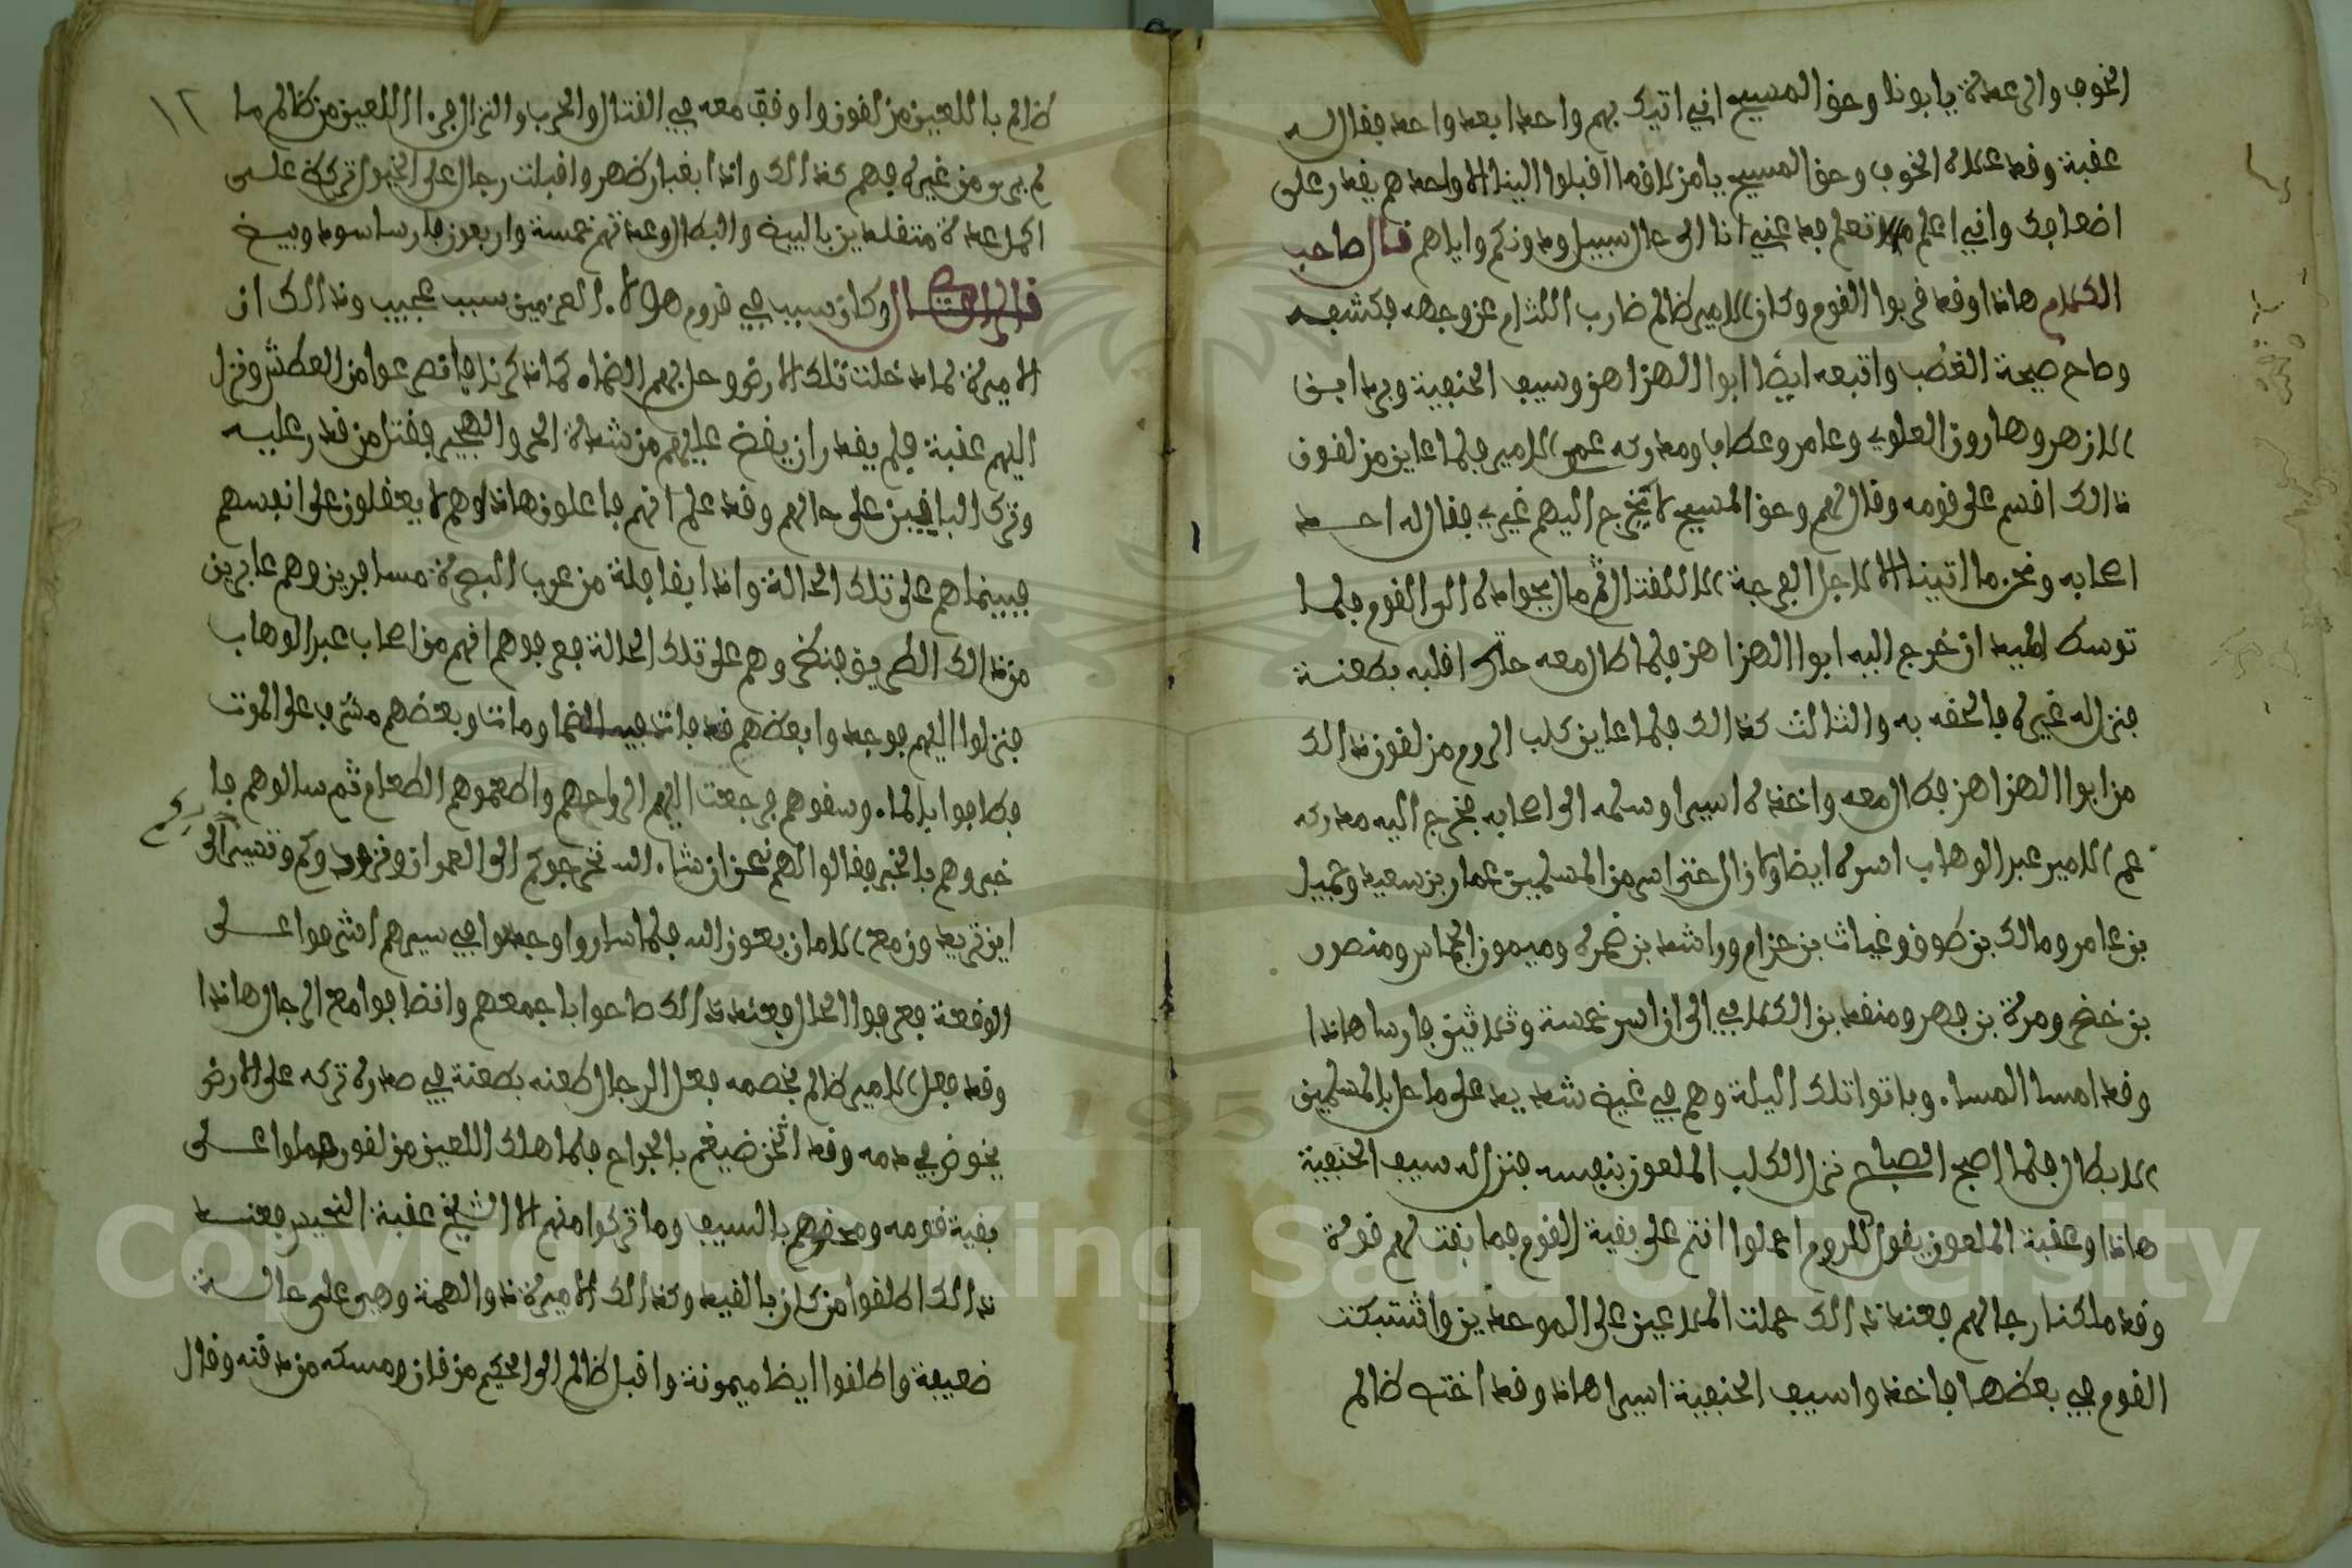 الخوف والرعدة يا بونا وحق المسيح اني اتيك بهم واحدا بعد واحد فقال له
عقبة وقد علاه الخوف وحق المسيح يا مزلاقه اقبلوا الينا الا واحد هم يقدر على
اضعافك واني اعلم ما لا تعلم فدعني انا الى حال السبيل ودونكم واياهم قال صاحب
الكلام هاذا وقد قربوا القوم وكان الامير ظالم ضارب اللثام عن وجهه فكشفه
وصاح صيحة الغضب واتبعه ايضا ابوا الهزاهز وسيف الحنفية وبرد ابن
الازهر وهارون العلوي وعامر وعطاف ومدركه عم الامير فلما عاين مزلقون
ذالك اقسم على قومه وقال لهم وحق المسيح لا يخرج اليهم غيري فقال له احد
اصحابه ونحن ما اتينا الا لاجل الفرجة لا للقتال ثم مال بجواده الى القوم فلما
توسط الميدان خرج اليه ابوا الهزاهز فلما طال معه حاك اقلبه بطعنة
فنزل له غيره فالحقه به والثالث كذالك فلما عاين كلب الروم مزلقون ذالك
من ابوا الهزاهز فطال معه واخذه اسيرا وسلمه الى اصحابه فخرج اليه مدركه
عم الامير عبد الوهاب اسره ايضا وكان الى ان اسر من المسلمين عمار بن سعيد وجميل
بن عامر ومالك بن طوق وغياث بن حزام وراشد بن ضمرة وميمون الجماس ومنصور
بن خضر ومرة بن فهر ومنقد بن الكلابي الى ان اسر خمسة وثلاثين فارسا هاذا
وقد امسا المساء وباتوا تلك اليلة وهم في غيض شديد على ما حل بالمسلمين
الابطال فلما اصبح الصباح نزل الكلب الملعون بنفسه فنزل له سيف الحنفية
هاذا وعقبة الملعون يقول للروم احملوا انتم على بقية القوم فما بقت لهم قوة
وقد ملكنا رجالهم فعند ذالك حملت الملاعين على الموحدين واشتبكت
القوم في بعضها فاخذوا سيف الحنفية اسيرا هاذا وقد اختبط ظالم
١٢
ظالم بااللعين مزلقون واوقف معه في القتال والحرب والنزال فرءا اللعين من ظالم ما
لم يرى من غيره فهم كذالك واذا بغبار ظهر واقبلت رجال على الخيول تركة على
اكمل عدة متقلدين بالبيض والبطال وعدتهم خمسة واربعون فارسا سود وبيض
قال الراوي وكان سبب في قدوم هولاء العزمين سبب عجيب وذالك ان
الاميرة لما دخلت تلك الارض وحل بهم الضماء كما ذكرنا فانصرعوا من العطش ونزل
اليهم عقبة فلم يقدر ان يقض عليهم من شدة الحر والهجير فقتل من قدر عليه
وترك الباقيين على حالهم وقد علم انهم فاعلون هاذا وهم لا يعقلون على انفسهم
فبينما هم على تلك الحالة واذا بقافلة من عرب البصرة مسافرين وهم عابرين
من ذالك الطريق فنظروهم على تلك الحالة فعرفوهم انهم من اصحاب عبد الوهاب
فنزلوا اليهم فوجدوا بعضهم قد فات فيه الضما ومات وبعضهم مشرف على الموت
فطافوا بالماء وسقوهم فرجعت اليهم ارواحهم واطعموهم الطعام ثم سالوهم فا
خبروهم بالخبر فقالوا لهم نحن ان شاء الله نخرجوكم الى العمران ونزودوكم ونسيرالى
بكم
اين تريد ونمع الامان بعون الله فلما ساروا وجدوا في سيرهم اشرفوا على
الوقعة فعرفوا الحال فعند ذالك صاحوا باجمعهم وانضافوا مع الرجال هاذا
وقد فعل الامير ظالم بخصمه فعل الرجال طعنه بطعنة في صدره تركه على الارض
يخوض في دمه وقد اثخن ضيغم بالجراح فلما هلك اللعين مزلقون حملوا على
بقية قومه ومحقوهم بالسيف وما تركوا منهم الا الشيخ عقبة النحيس فعند
ذالك اطلقوا من كان بالقيد وكذالك الاميرة ذو الهمة وهي على حالة
ضعيفة واطلقوا ايضا ميمونة واقبل ظالم الى الحكيم مزقان ومسكه من دقنه وقال